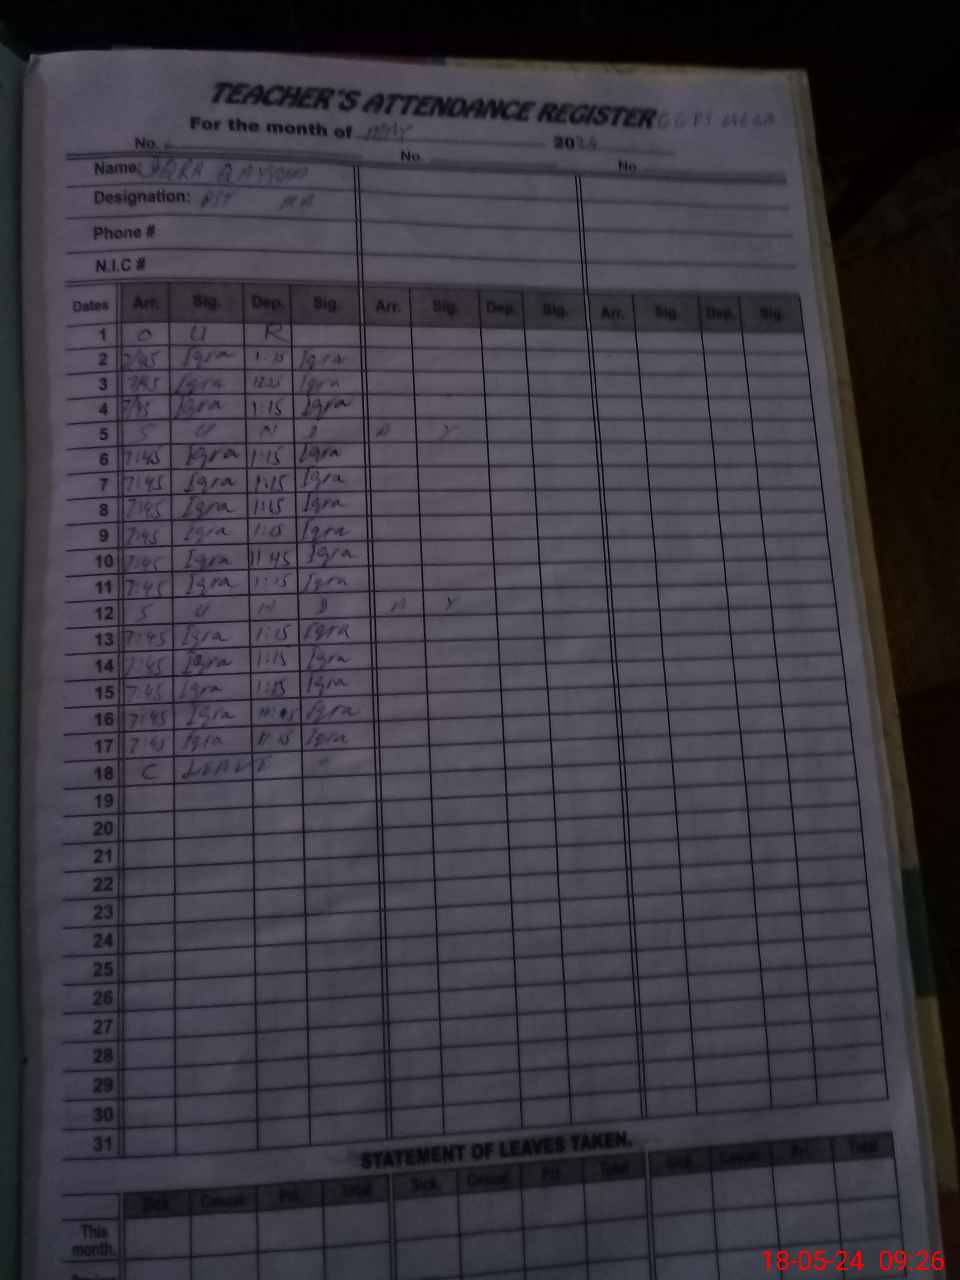 TEACHER'S ATTENDANCE REGISTER
For the month of May 2024
No. No No
Name: IQRA QAYYUM
Designation: PST
Phone #
N.I.C #
Dates Arr. Sig. Dep. Sig. Arr. Sig. Dep. Sig. Arr. Sig. Dep. Sig.
1 O U R
2 7:45 Iqra 1:15 Iqra
3 7:45 Iqra Iqra
4 7:45 Iqra 1:15 Iqra
5 S U N D A Y
6 7:45 Iqra 1:15 Iqra
7 7:45 Iqra 1:15 Iqra
8 7:45 Iqra 1:15 Iqra
9 7:45 Iqra 1:15 Iqra
10 7:45 Iqra 11:45 Iqra
11 7:45 Iqra 1:15 Iqra
12 S U N D A Y
13 7:45 Iqra 1:15 Iqra
14 7:45 Iqra 1:15 Iqra
15 7:45 Iqra 1:15 Iqra
16 7:45 Iqra Iqra
17 7:45 Iqra Iqra
18 C LEAVE
19
20
21
22
23
24
25
26
27
28
29
30
31
STATEMENT OF LEAVES TAKEN.
Sick. Casual. Pri. Total Sick. Casual. Pri. Total Sick. Casual. Pri. Total
This
month.
18-05-24 09:26